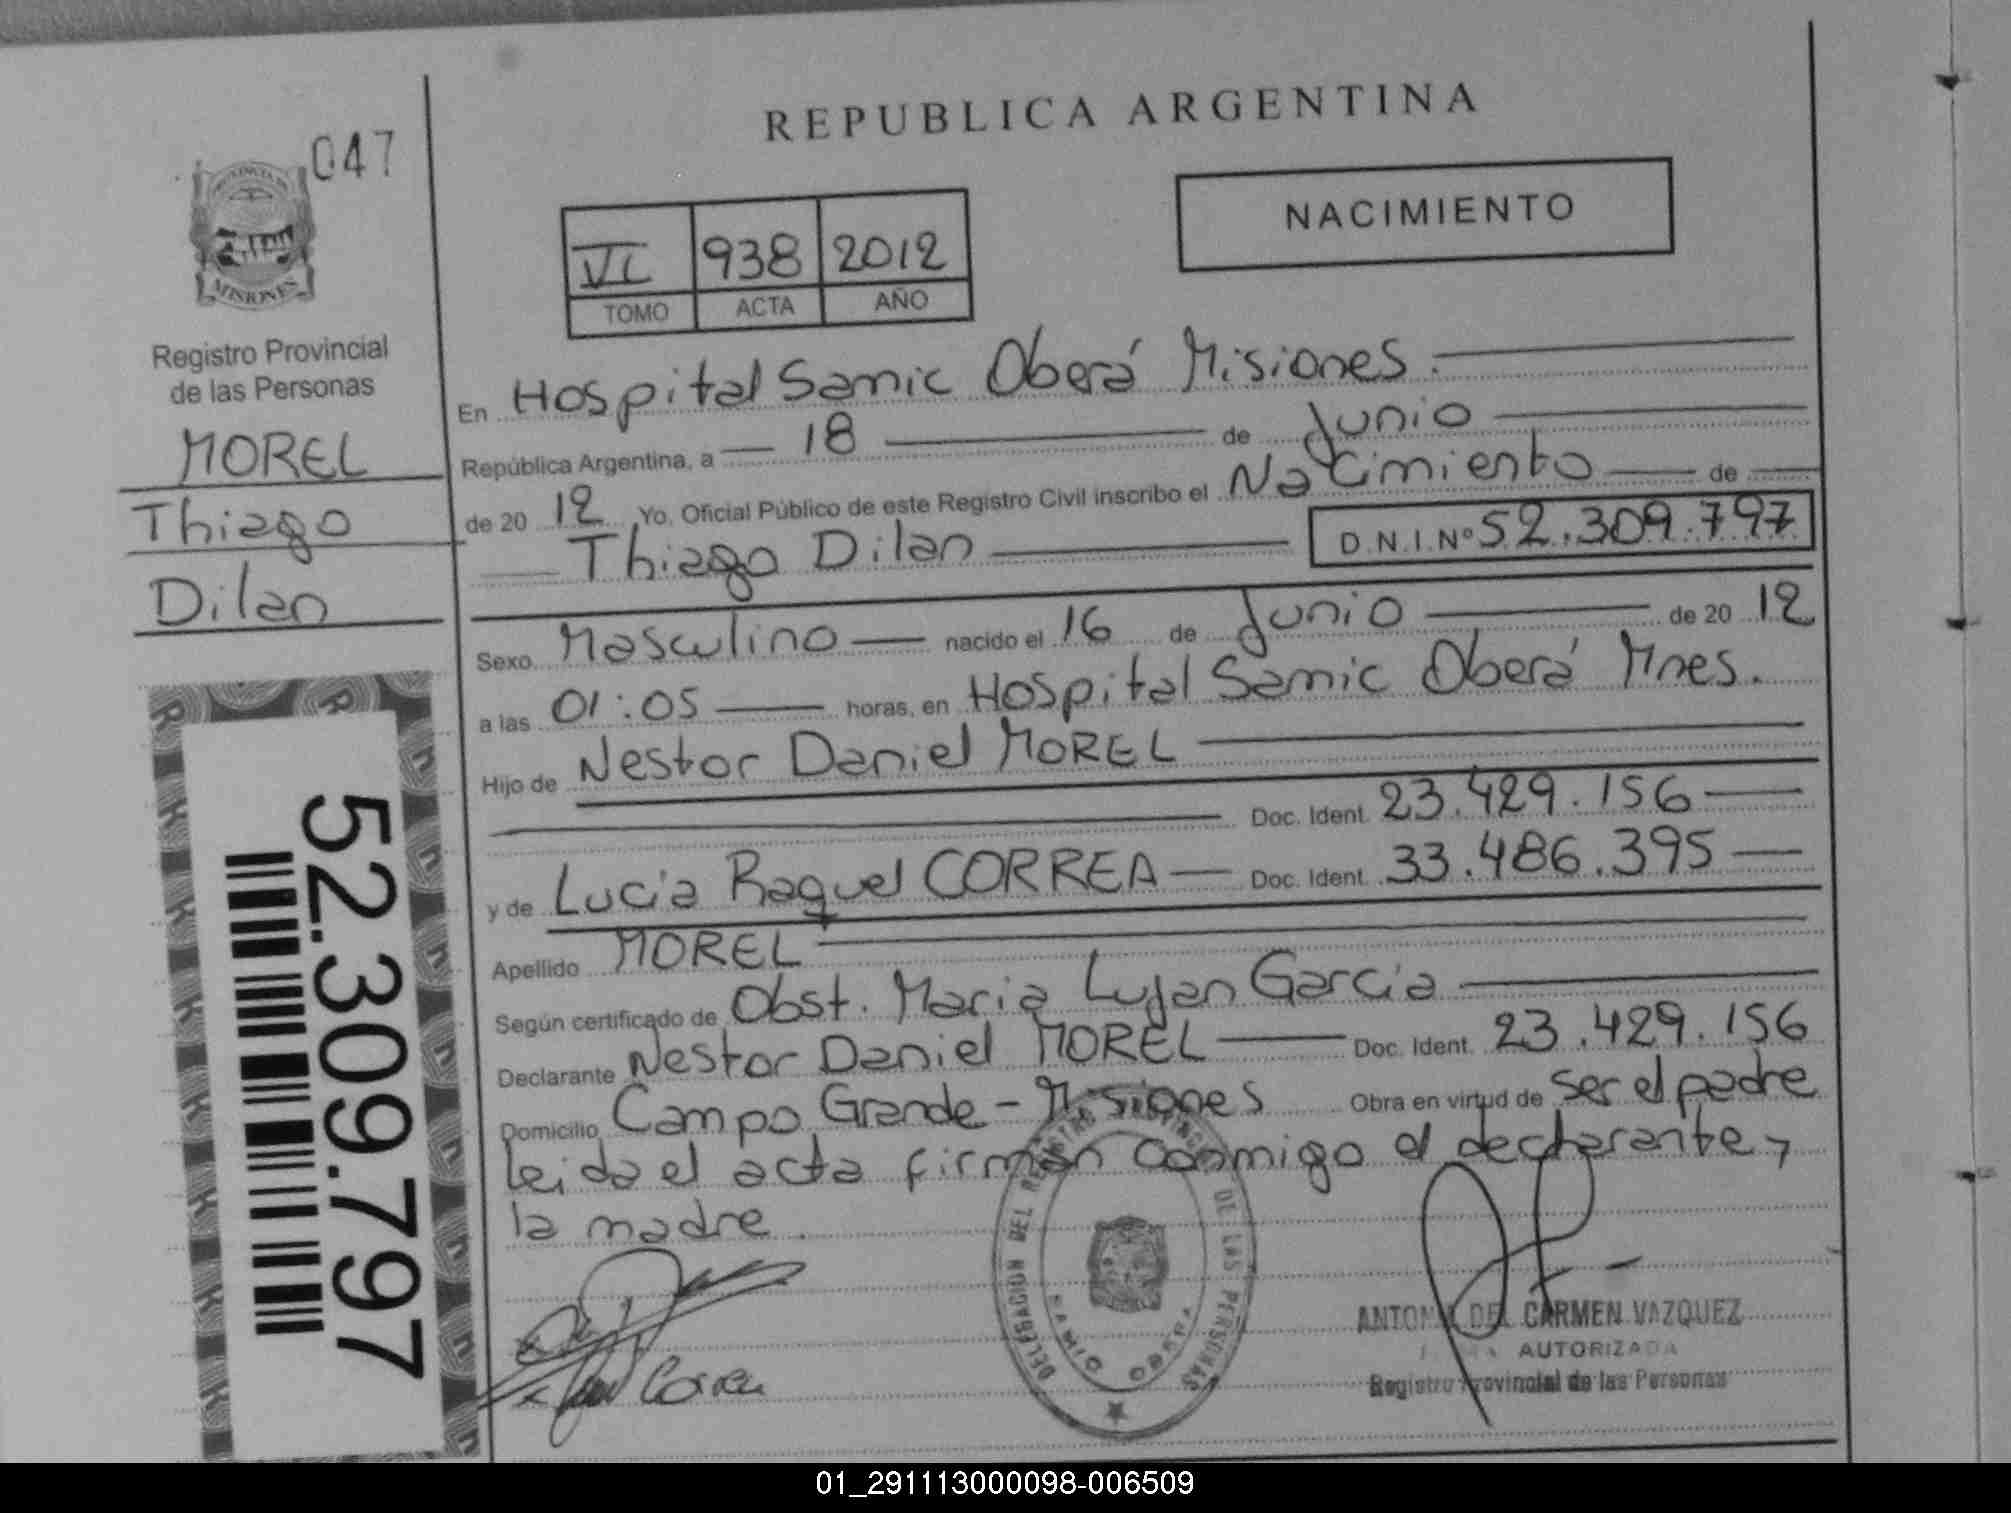 047
PROVINCIA DE
MISIONES
Registro Provincial
de las Personas
MOREL
Thiago
Dilan
52.309.797
REPUBLICA ARGENTINA
VI 938 2012
TOMO ACTA AÑO
NACIMIENTO
En Hospital Samic Oberá Misiones.
República Argentina, a 18 de Junio
de 20 12 Yo, Oficial Público de este Registro Civil inscribo el Nacimiento de
Thiago Dilan D.N.I.Nº 52.309.797
Sexo Masculino nacido el 16 de Junio de 20 12
a las 01:05 horas, en Hospital Samic Oberá Mnes.
Hijo de Nestor Daniel MOREL
Doc. Ident. 23.429.156
y de Lucia Raquel CORREA Doc. Ident. 33.486.395
Apellido MOREL
Según certificado de Obst. Maria Lujan Garcia
Declarante Nestor Daniel MOREL Doc. Ident. 23.429.156
Domicilio Campo Grande - Misiones Obra en virtud de ser el padre
leida el acta firman conmigo el declarante y
la madre.
DELEGACION DEL REGISTRO PROVINCIAL DE LAS PERSONAS
Correa
ANTONIA DEL CARMEN VAZQUEZ
AUTORIZADA
Registro Provincial de las Personas
01_291113000098-006509